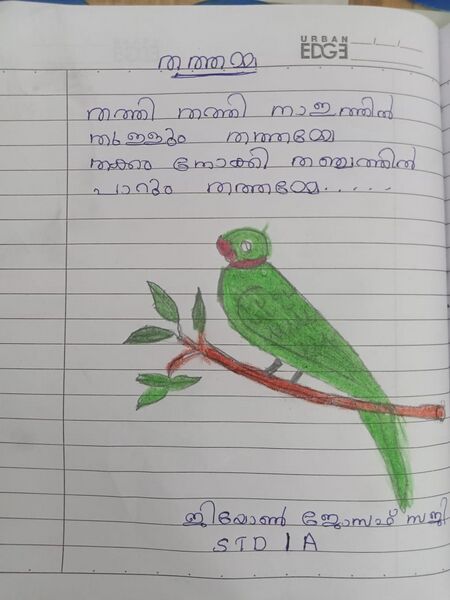 URBAN
EDGE
തത്തമ്മ
തത്തി തത്തി നാട്ടത്തിൽ
തുള്ളും തത്തമ്മേ
തക്കം നോക്കി തഞ്ചത്തിൽ
പാറും തത്തമ്മേ......
ജിയോൺ ജോസഫ് സജി
STD 1 A